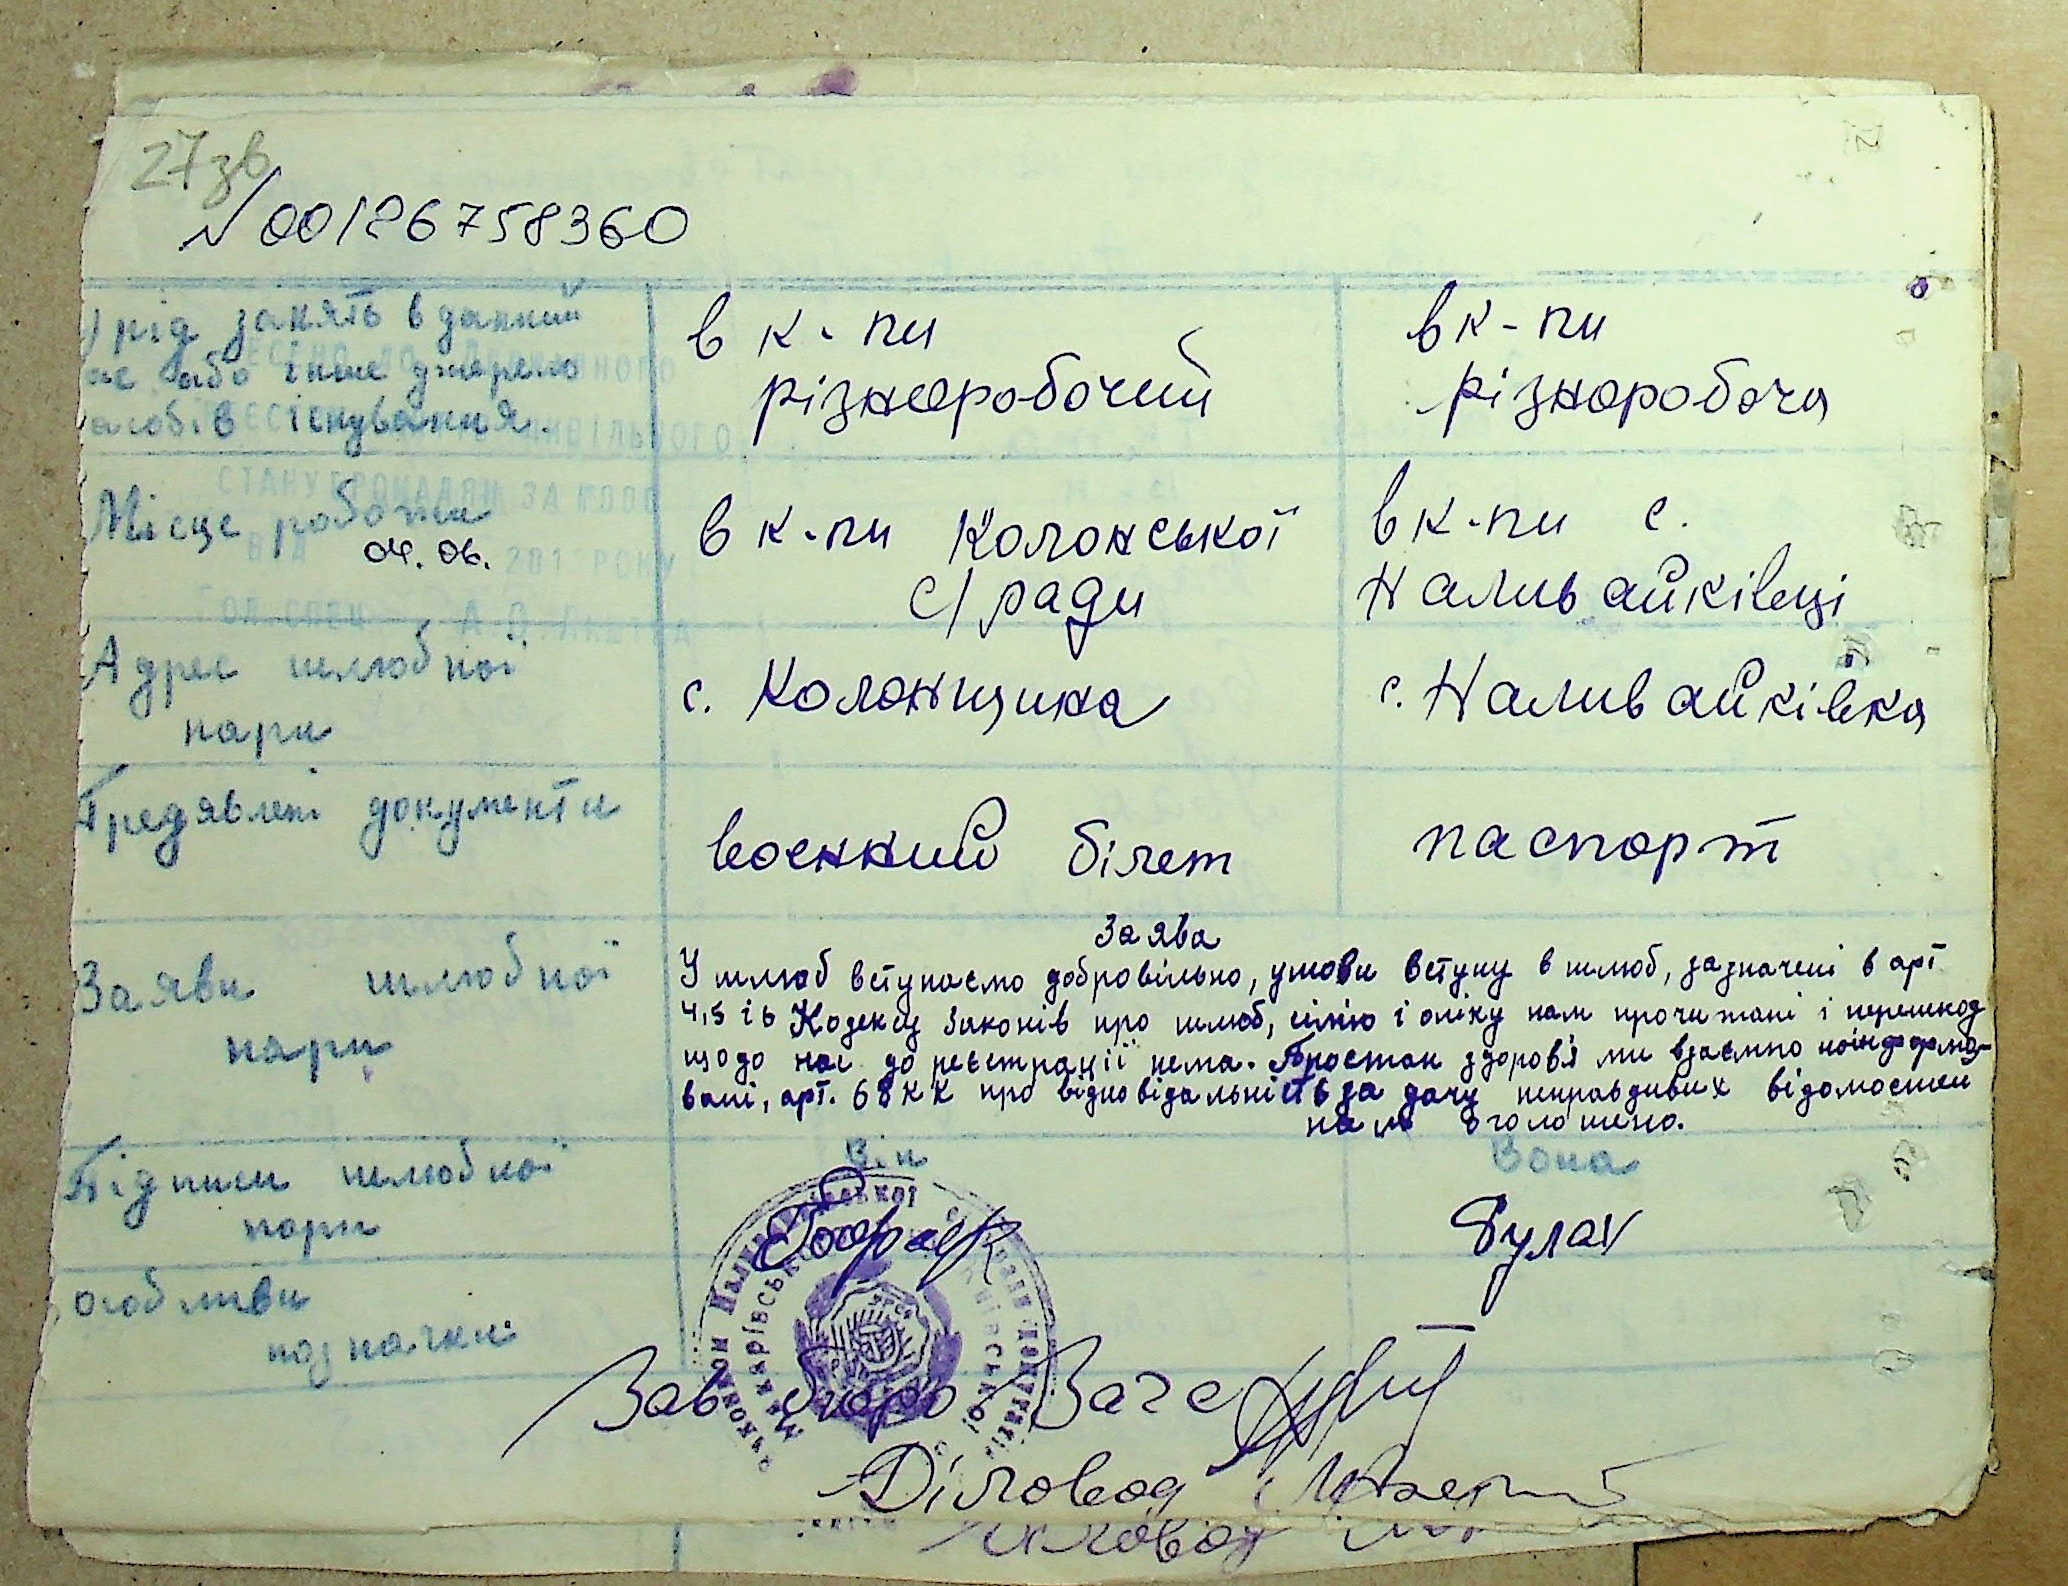 27зв
№00126758360
рід занять в данний
час або інше джерело
засобів існування.
в к-пи
різноробочий
в к-пи
різноробоча
Місце роботи
04. 06.
в к-пи Колонської
с/ради
в к-пи с.
Наливайківці
Адрес шлюбної
пари
с. Колонщина
с. Наливайківка
Предявлені документи
военний білет
паспорт
Заяви шлюбної
пари
Заява
У шлюб вступаємо добровільно, умови вступу в шлюб, зазначені в арт
4,5 і 6 Кодексу Законів про шлюб, сімю і опіку нам прочитані і перешкод
щодо нас до реєстрації нема. Про стан здоров'я ми взаємно поінформо-
вані, арт. 68 КК про відповідальність за дачу неправдивих відомостей
нам оголошено.
Підписи шлюбної
пари
Він
Вона
Булах
особливи
позначки
Зав бюро Загс
Діловод